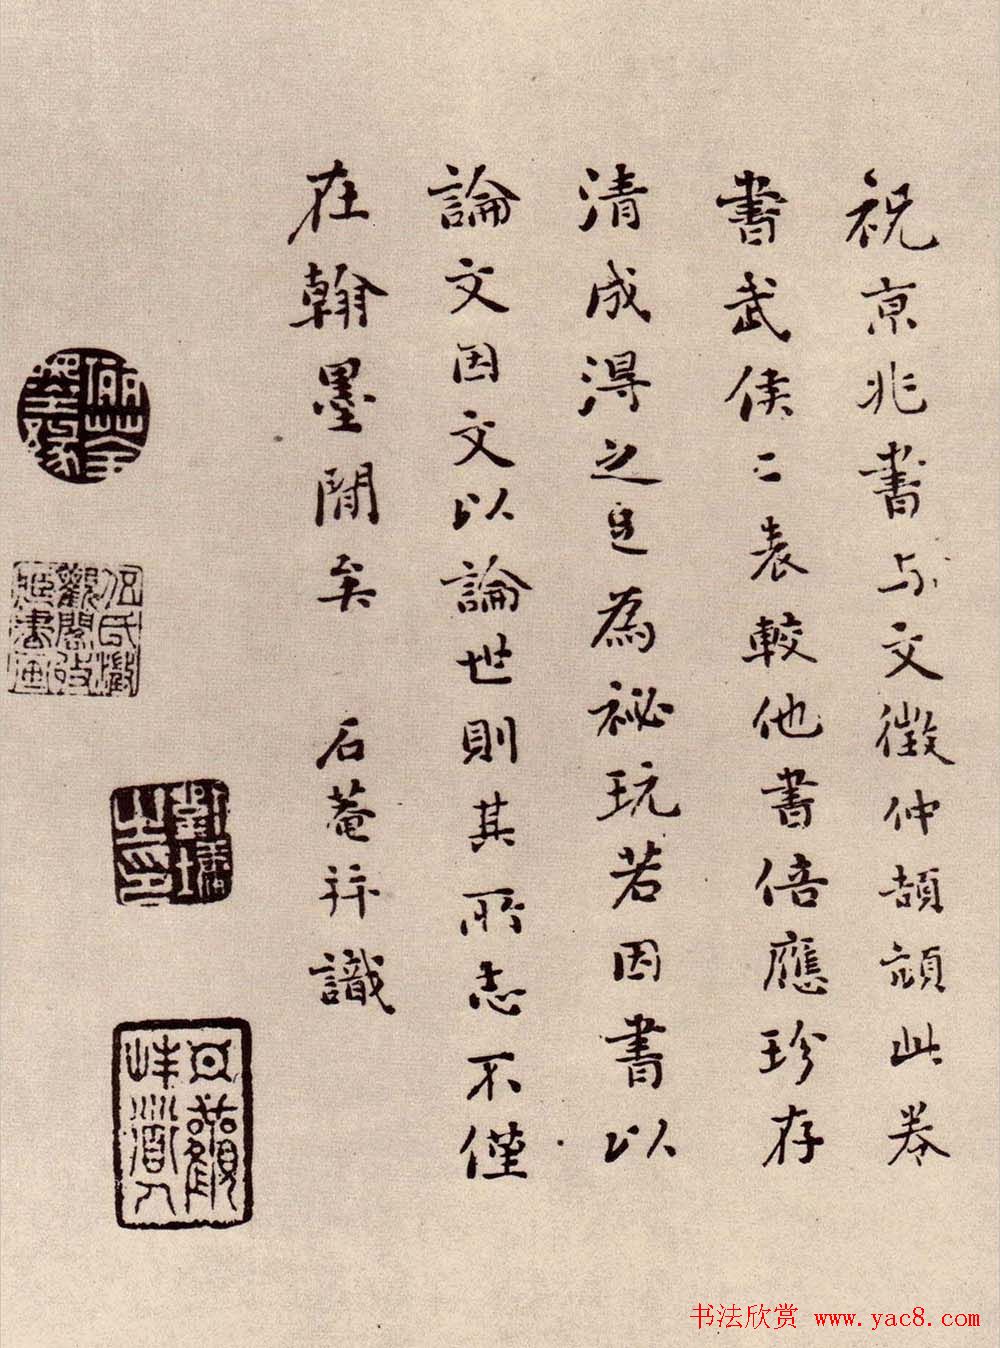 祝京兆書与文徵仲頡頏此卷
書武侯二表較他書倍應珍存
清成淂之足為祕玩若因書以
論文因文以論世則其所志不僅
在翰墨閒矣 石菴并識
劉墉之印
日觀峰道人
伍氏儼荃
書法欣赏 www.yac8.com